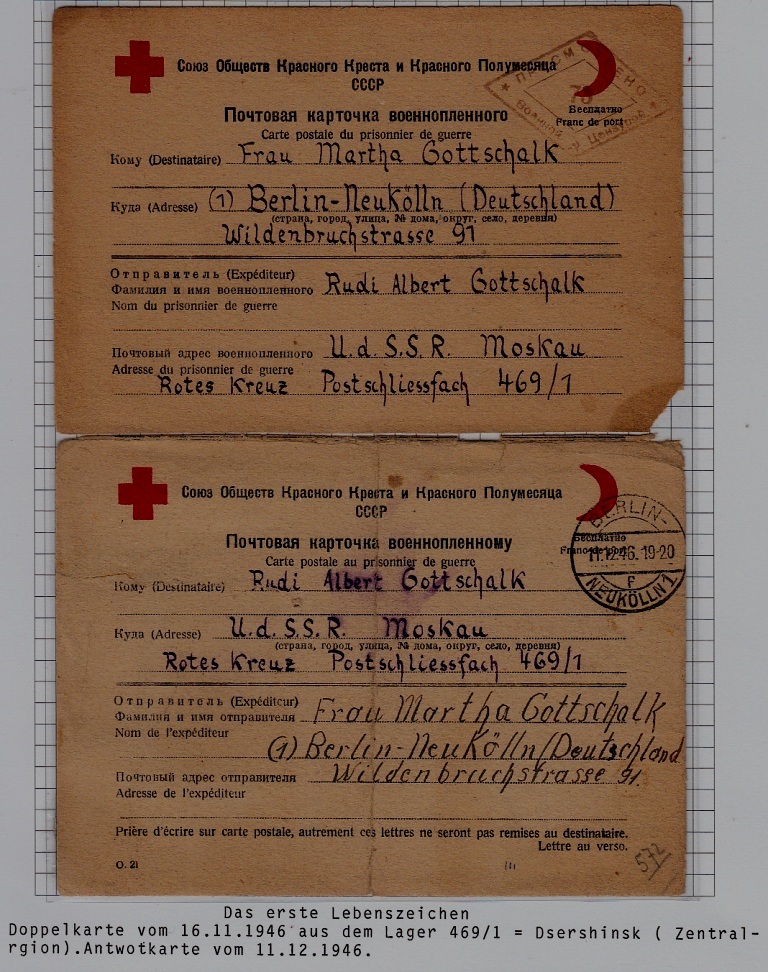 Союз Обществ Красного Креста и Красного Полумесяца
СССР
ПРОСМОТРЕНО
Бесплатно
Franc de port
Почтовая карточка военнопленного
Carte postale du prisonnier de guerre
Кому (Destinataire) Frau Martha Gottschalk
Куда (Adresse) (1) Berlin-Neukölln (Deutschland)
(страна, город, улица, № дома, округ, село, деревня)
Wildenbruchstrasse 91
Отправитель (Expéditeur)
Фамилия и имя военнопленного Rudi Albert Gottschalk
Nom du prisonnier de guerre
Почтовый адрес военнопленного U.d.S.S.R. Moskau
Adresse du prisonnier de guerre
Rotes Kreuz Postschliessfach 469/1
Союз Обществ Красного Креста и Красного Полумесяца
СССР
Бесплатно
Franc de port
BERLIN-
11.12.46.19-20
F
NEUKÖLLN 1
Почтовая карточка военнопленному
Carte postale au prisonnier de guerre
Кому (Destinataire) Rudi Albert Gottschalk
Куда (Adresse) U.d.S.S.R. Moskau
(страна, город, улица, № дома, округ, село, деревня)
Rotes Kreuz Postschliessfach 469/1
Отправитель (Expéditeur)
Фамилия и имя отправителя Frau Martha Gottschalk
Nom de l'expéditeur
(1) Berlin-Neukölln (Deutschland
Почтовый адрес отправителя Wildenbruchstrasse 91.
Adresse de l'expéditeur
Prière d'écrire sur carte postale, autrement ces lettres ne seront pas remises au destinataire.
Lettre au verso.
О. 21
572
Das erste Lebenszeichen
Doppelkarte vom 16.11.1946 aus dem Lager 469/1 = Dsershinsk ( Zentral-
rgion).Antwotkarte vom 11.12.1946.